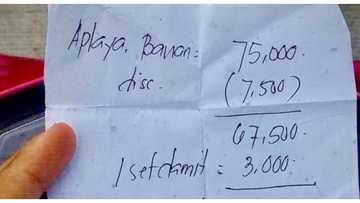 Aplaya, Bauan = 75,000.
disc. (7,500)
67,500.
1 set damit = 3,000.